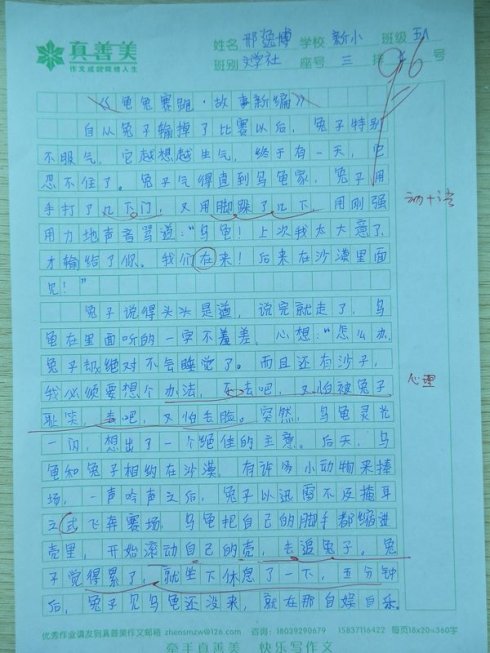 真善美
作文成就锦绣人生
姓名 邢逸博 学校 新小 班级 五八
班别 文学社 座号 三 排 号
96
《龟兔赛跑·故事新编》
自从兔子输掉了比赛以后，兔子特别
不服气，它越想越生气，终于有一天，它
忍不住了。兔子气得直到乌龟家，兔子用
手打了几下门，又用脚踩了几下，用刚强
用力地声音骂道：“乌龟！上次我太大意了，
才输给了你。我们在来！后来在沙漠里面
见！”
兔子说得头头是道，说完就走了，乌
龟在里面听的一字不差差，心想：“怎么办，
兔子却绝对不会睡觉了。而且还有沙子，
我必须要想个办法，不去吧，又怕被兔子
耻笑，去吧，又怕丢脸。突然，乌龟灵光
一闪，想出了一个绝佳的主意。后天，乌
龟和兔子相约在沙漠，有许多小动物来捧
场，一声哨声之后，兔子以迅雷不及掩耳
之式飞奔赛场，乌龟把自己的脚手都缩进
壳里，开始滚动自己的壳，去追兔子。兔
子觉得累了，就坐下休息了一下，五分钟
后，兔子见乌龟还没来，就在那自娱自乐。
动十语
心理
优秀作业请发到真善美作文邮箱 zhensmzw@126.com 咨询：18039290679 15837116422 每页18x20=360字
牵手真善美 快乐写作文